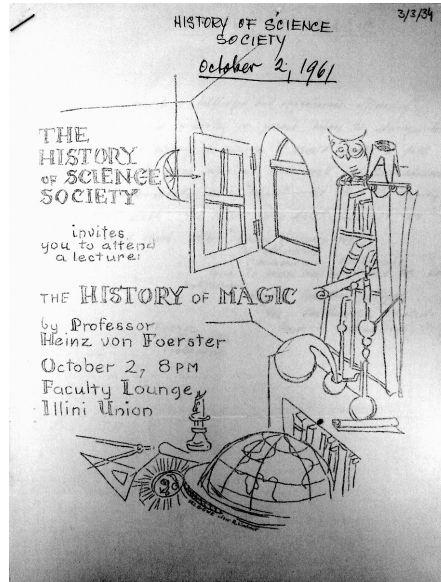 3/3/34
HISTORY OF SCIENCE
SOCIETY
October 2, 1961
THE
HISTORY
OF SCIENCE
SOCIETY
invites
you to attend
a lecture:
THE HISTORY OF MAGIC
by Professor
Heinz von Foerster
October 2, 8 PM
Faculty Lounge
Illini Union